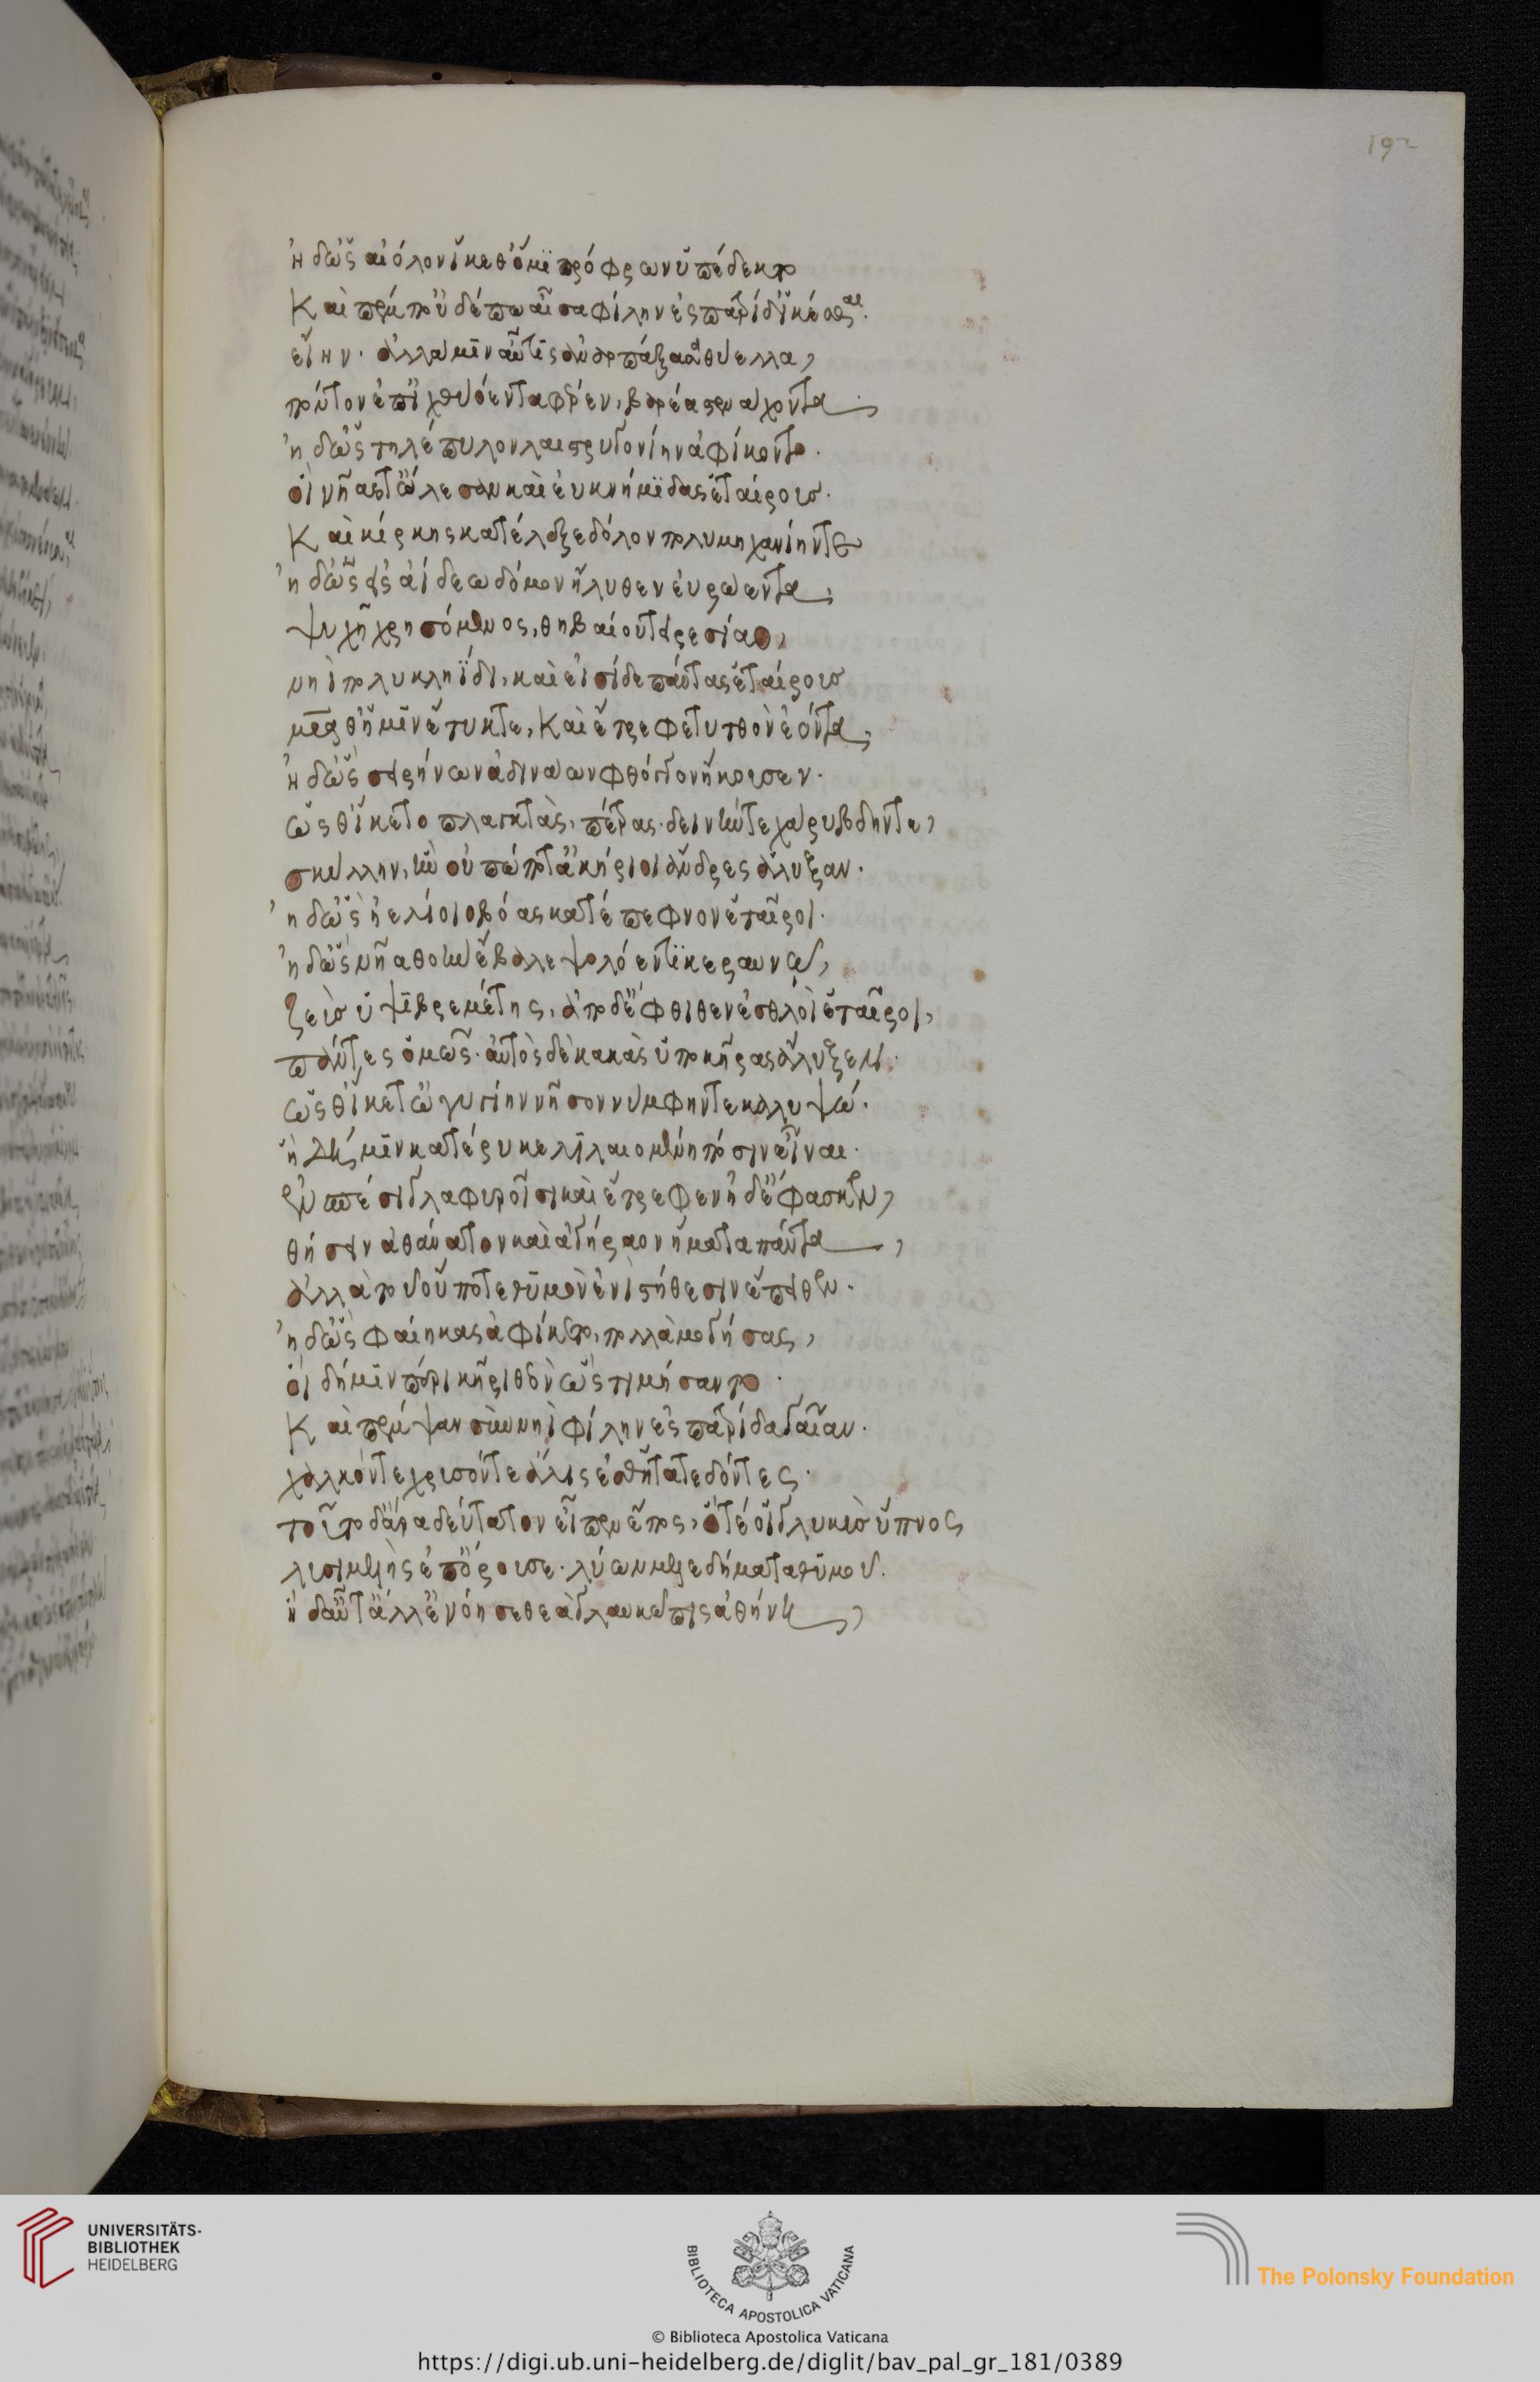 192
ἠδ' ὡς αἰόλον ἵκεθ' ὅ μιν πρόφρων ὑπέδεκτο
Καὶ πέμπ' οὐδέ πω αἶσα φίλην ἐς πατρίδ' ἱκέσθαι
εἴην· ἀλλά μιν αὖτις ἀναρπάξασα θύελλα,
πόντον ἐπ' ἰχθυόεντα φέρεν, βαρέα στενάχοντα
ἠδ' ὡς τηλέπυλον λαιστρυγονίην ἀφίκοντο.
οἳ νῆάς τ' ὤλεσαν καὶ ἐυκνήμιδας ἑταίρους.
Καὶ κίρκης κατέλεξε δόλον πολυμηχανίην τε
ἠδ' ὡς εἰς ἀίδεω δόμον ἤλυθεν εὐρώεντα,
ψυχῇ χρησόμενος, θηβαίου τειρεσίαο,
νηὶ πολυκληίδι, καὶ εἴσιδε πάντας ἑταίρους
μητέρα θ' ἥ μιν ἔτικτε, Καὶ ἔτρεφε τυτθὸν ἐόντα,
ἠδ' ὡς σειρήνων ἀδινάων φθόγγον ἤκουσεν.
ὥς θ' ἵκετο πλαγκτὰς, πέτρας· δεινήν τε χάρυβδην τε,
σκύλλην, ἣν οὐ πώποτ' ἀκήριοι ἄνδρες ἄλυξαν.
ἠδ' ὡς ἠελίοιο βόας κατέπεφνον ἑταῖροι.
ἠδ' ὡς νῆα θοὴν ἔβαλε ψολόεντι κεραυνῷ,
ζεὺς ὑψιβρεμέτης, ἀπὸ δ' ἔφθιθεν ἐσθλοὶ ἑταῖροι,
πάντες ὁμῶς· αὐτὸς δὲ κακὰς ὑπὸ κῆρας ἄλυξεν.
ὥς θ' ἵκετ' ὠγυγίην νῆσον νύμφην τε καλυψώ.
ἣ δή μιν κατέρυκε λιλαιομένη πόσιν εἶναι.
ἐν σπέσι γλαφυροῖσι καὶ ἔτρεφεν ἠδὲ ἔφασκεν,
θήσειν ἀθάνατον καὶ ἀγήραον ἤματα πάντα,
ἀλλὰ τοῦ οὔποτε θυμὸν ἐνὶ στήθεσιν ἔπειθεν.
ἠδ' ὡς φαίηκας ἀφίκετο, πολλὰ μογήσας,
οἳ δή μιν πέρι κῆρι θεὸν ὣς τιμήσαντο
Καὶ πέμψαν σὺν νηὶ φίλην ἐς πατρίδα γαῖαν.
χαλκόν τε χρυσόν τε ἅλις ἐσθῆτά τε δόντες.
τοῦτο δ' ἄρα δεύτατον εἶπεν ἔπος, ὅτέ οἱ γλυκὺς ὕπνος
λυσιμελὴς ἐπόρουσε· λύων μελεδήματα θυμοῦ.
ἡ δ' αὖτ' ἄλλ' ἐνόησε θεὰ γλαυκῶπις ἀθήνη,
UNIVERSITÄTS-
BIBLIOTHEK
HEIDELBERG
BIBLIOTECA APOSTOLICA VATICANA
The Polonsky Foundation
© Biblioteca Apostolica Vaticana
https://digi.ub.uni-heidelberg.de/diglit/bav_pal_gr_181/0389